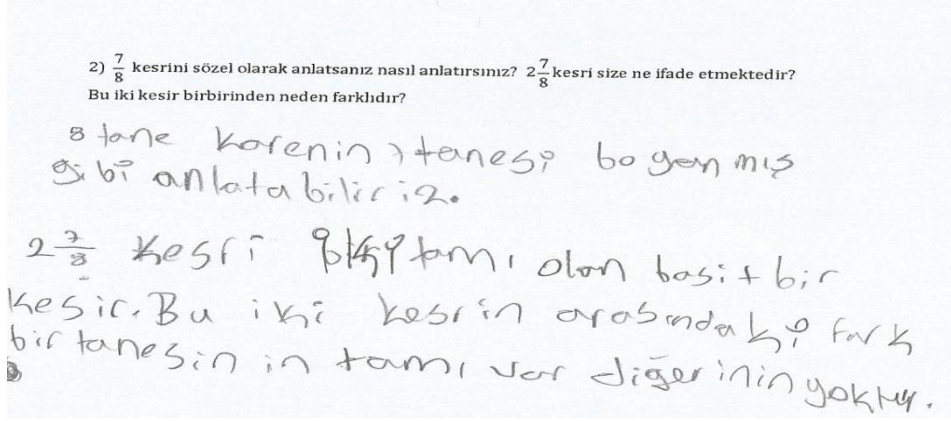 2) 7/8 kesrini sözel olarak anlatsanız nasıl anlatırsınız? 2 7/8 kesri size ne ifade etmektedir?
Bu iki kesir birbirinden neden farklıdır?
8 tane karenin 7 tanesi boyanmış
gibi anlatabiliriz.
2 7/8 kesri iki tamı olan basit bir
kesir. Bu iki kesrin arasındaki fark
bir tanesinin tamı var diğerinin yoktur.